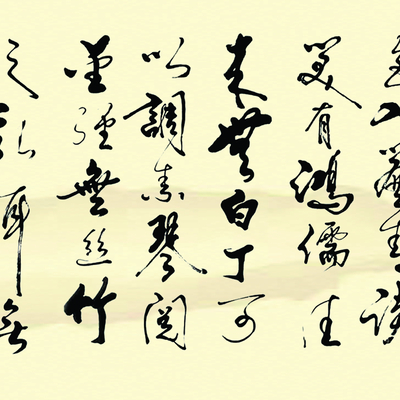 色入簾青談
笑有鴻儒往
来無白丁可
以調素琴閱
金經無丝竹
之亂耳無